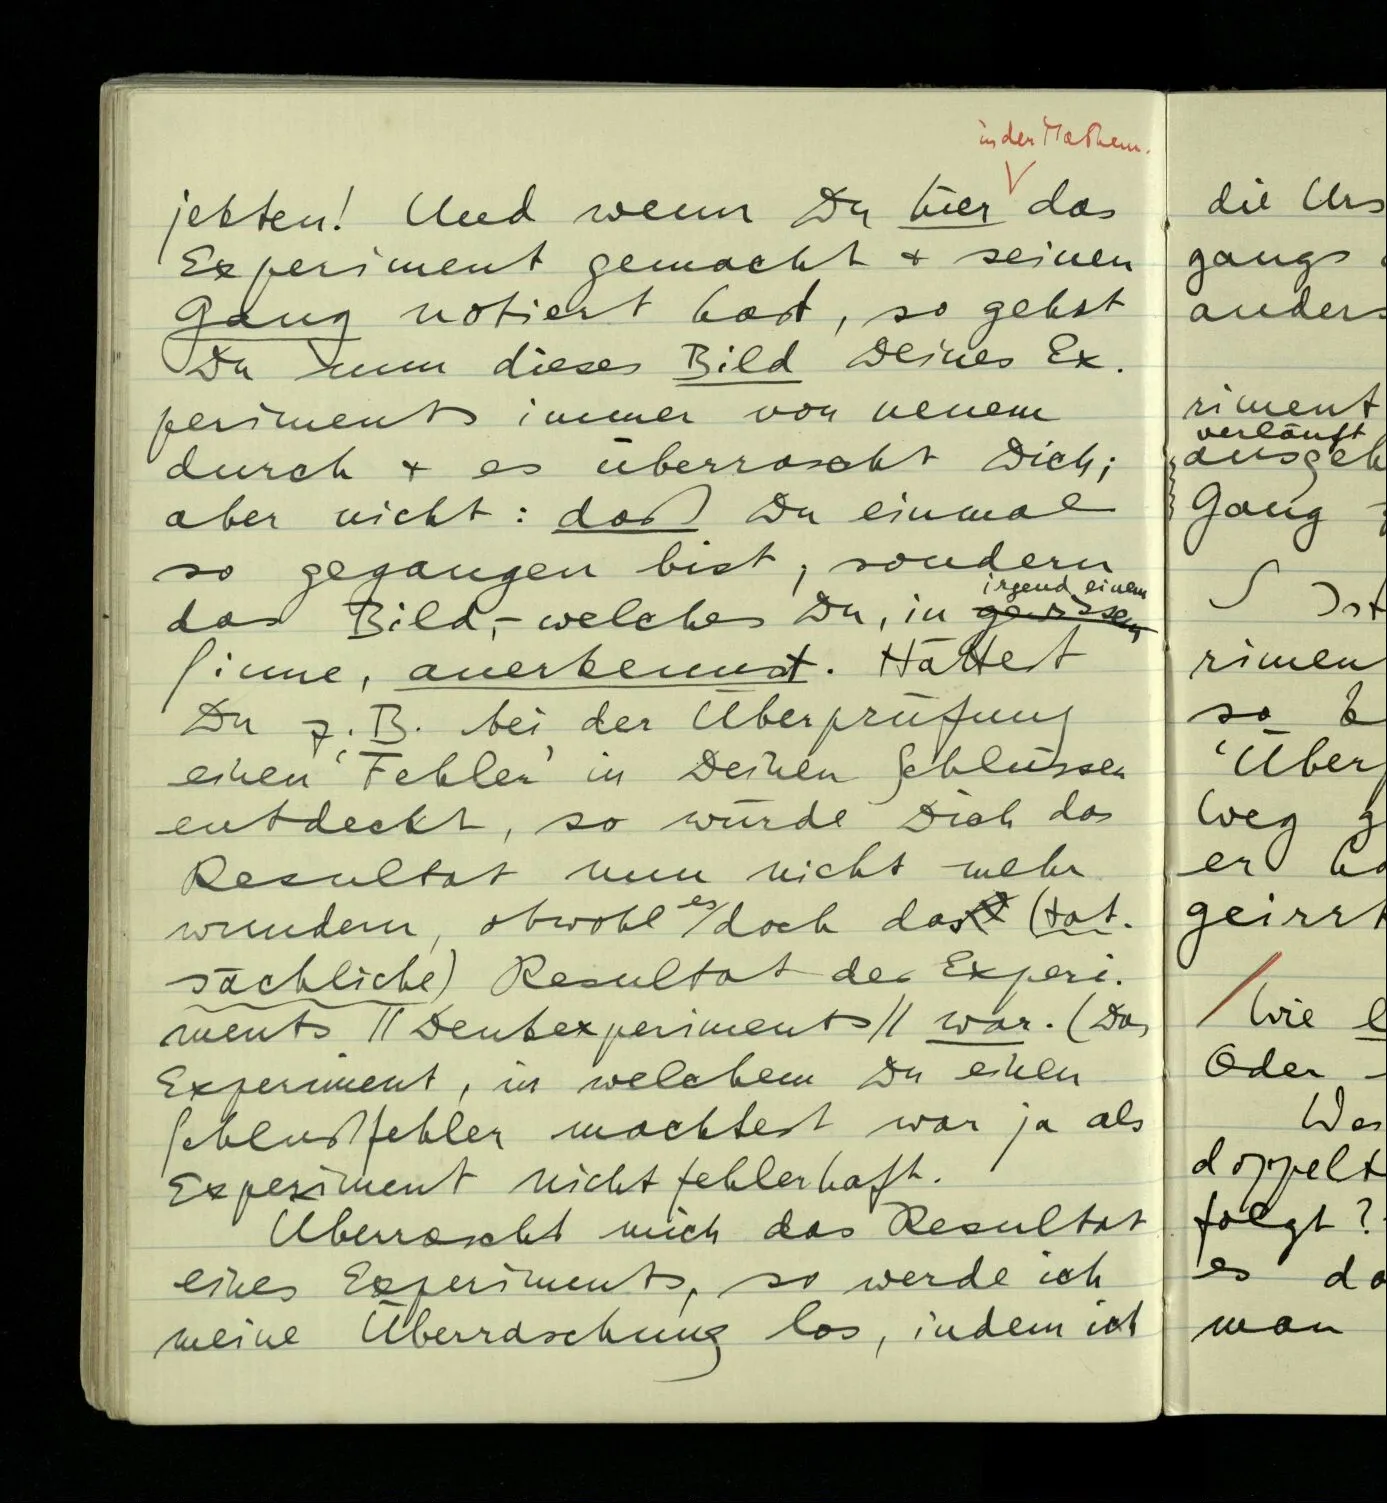 in der Mathem.
jekten! Und wenn Du hier das
Experiment gemacht + seinen
Gang notiert hast, so gehst
Du nun dieses Bild Deines Ex-
periments immer von neuem
durch + es überrascht Dich;
aber nicht: daß Du einmal
so gegangen bist, sondern
irgend einem
das Bild, – welches Du, in gewissem
Sinne, anerkennst. Hättest
Du z.B. bei der Überprüfung
einen 'Fehler' in Deinen Schlüssen
entdeckt, so würde Dich das
Resultat nun nicht mehr
wundern, obwohl es doch das (tat-
sächliche) Resultat des Experi-
ments // Denkexperiments // war. (Das
Experiment, in welchem Du einen
Schlußfehler machtest war ja als
Experiment nicht fehlerhaft.
Überrascht mich das Resultat
eines Experiments, so werde ich
meine Überraschung los, indem ich
die Urs
gangs
anders
riment
verläuft
ausgeh
Gang
S Ist
rimen
so
'Überp
Weg g
er ha
geirrt
/ Wie
Oder
Wes
doppelt
folgt?
es da
man